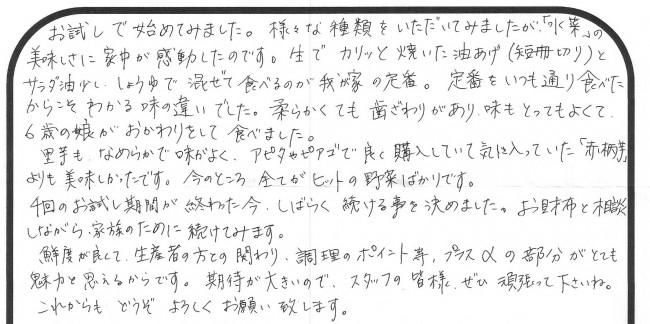 お試しで始めてみました。様々な種類をいただいてみましたが、「水菜」の
美味しさに家中が感動したのです。生で カリッと焼いた油あげ(短冊切り)と
サラダ油少し、しょうゆで混ぜて食べるのが我が家の定番。定番をいつも通り食べた
からこそわかる味の違いでした。柔らかくても歯ざわりがあり、味もとってもよくて、
6歳の娘がおかわりをして食べました。
里芋も、なめらかで味がよく、アピタやピアゴで良く購入していて気に入っていた「赤柄芋」
よりも美味しかったです。今のところ全てがヒットの野菜ばかりです。
4回のお試し期間が終わった今、しばらく続ける事を決めました。お財布と相談
しながら、家族のために続けてみます。
鮮度が良くて、生産者の方との関わり、調理のポイント等、プラスαの部分がとても
魅力と思えるからです。期待が大きいので、スタッフの皆様、ぜひ頑張って下さいね。
これからもどうぞよろしくお願い致します。